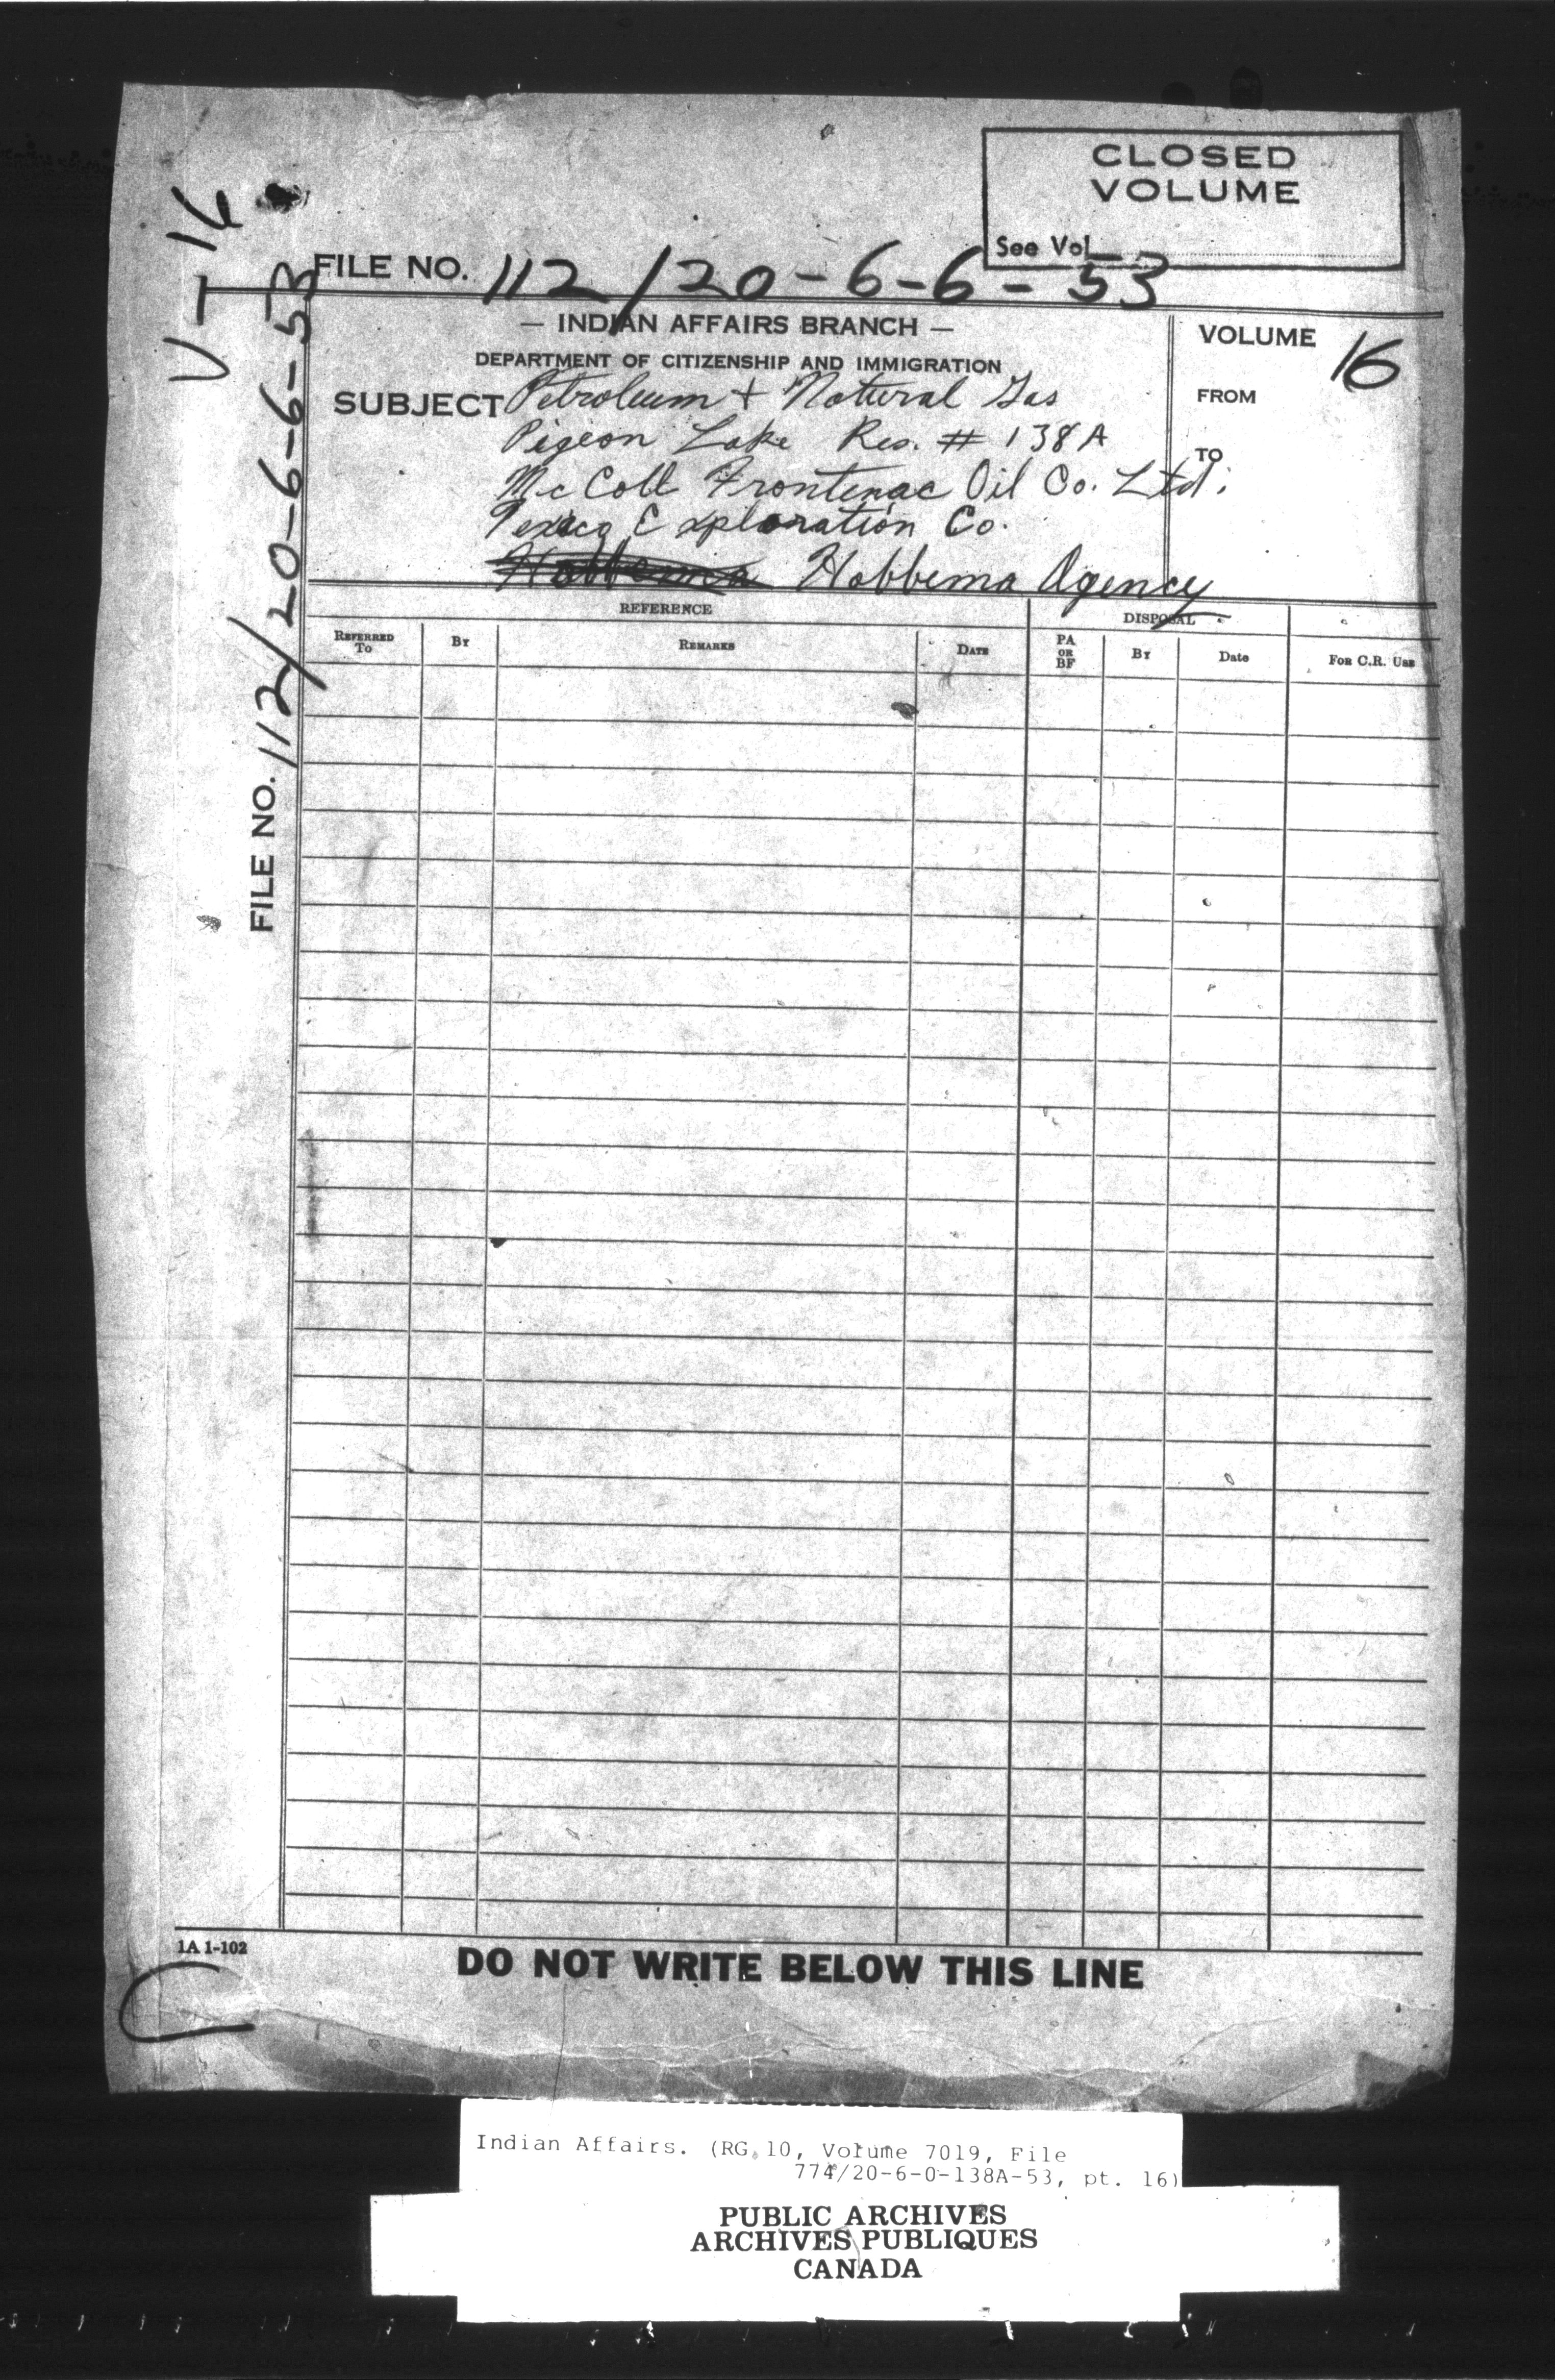 CLOSED
VOLUME
See Vol
V-16
FILE NO. 112/20-6-6-53
FILE NO. 112/20-6-6-53
— INDIAN AFFAIRS BRANCH —
DEPARTMENT OF CITIZENSHIP AND IMMIGRATION
VOLUME 16
FROM
TO
SUBJECT Petroleum + Natural Gas
Pigeon Lake Res. # 138A
McColl Frontenac Oil Co. Ltd;
Texaco Exploration Co.
Hobbema Hobbema Agency
REFERENCE
DISPOSAL
REFERRED TO
BY
REMARKS
DATE
PA OR BF
BY
Date
FOR C.R. USE
1A 1-102
DO NOT WRITE BELOW THIS LINE
Indian Affairs. (RG 10, Volume 7019, File
774/20-6-0-138A-53, pt. 16)
PUBLIC ARCHIVES
ARCHIVES PUBLIQUES
CANADA